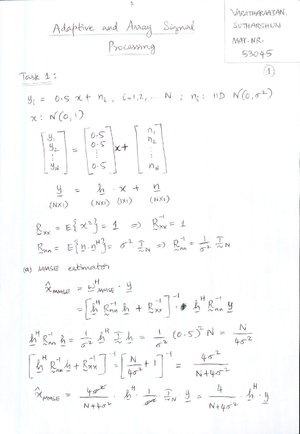 Adaptive and Array Signal
Processing
SUTHARSHAN
MAT-NR.
53045
①
Task 1:
y_i = 0.5 x + n_i , i=1,2,... N ; n_i : IID N(0,σ²)
x : N(0,1)
[y_1 y_2 ⋮ y_N] = [0.5 0.5 ⋮ 0.5] x + [n_1 n_2 ⋮ n_N]
y = h . x + n
(N×1) (N×1) (1×1) (N×1)
R_xx = E{x²} = 1 ⇒ R_xx^-1 = 1
R_nn = E{n.n^H} = σ² I_N ⇒ R_nn^-1 = 1/σ² I_N
(a) MMSE estimator
x̂_MMSE = w^H . y
= [h^H R_nn^-1 h + R_xx^-1]^-1 . h^H R_nn^-1 y
h^H R_nn^-1 h = 1/σ² h^H I h = 1/σ² (0.5)² N = N/4σ²
[h^H R_nn^-1 h + R_xx^-1]^-1 = [N/4σ² + 1]^-1 = 4σ²/N+4σ²
x̂_MMSE = 4σ²/N+4σ² . h^H . 1/σ² I_N y = 4/N+4σ² . h^H . y